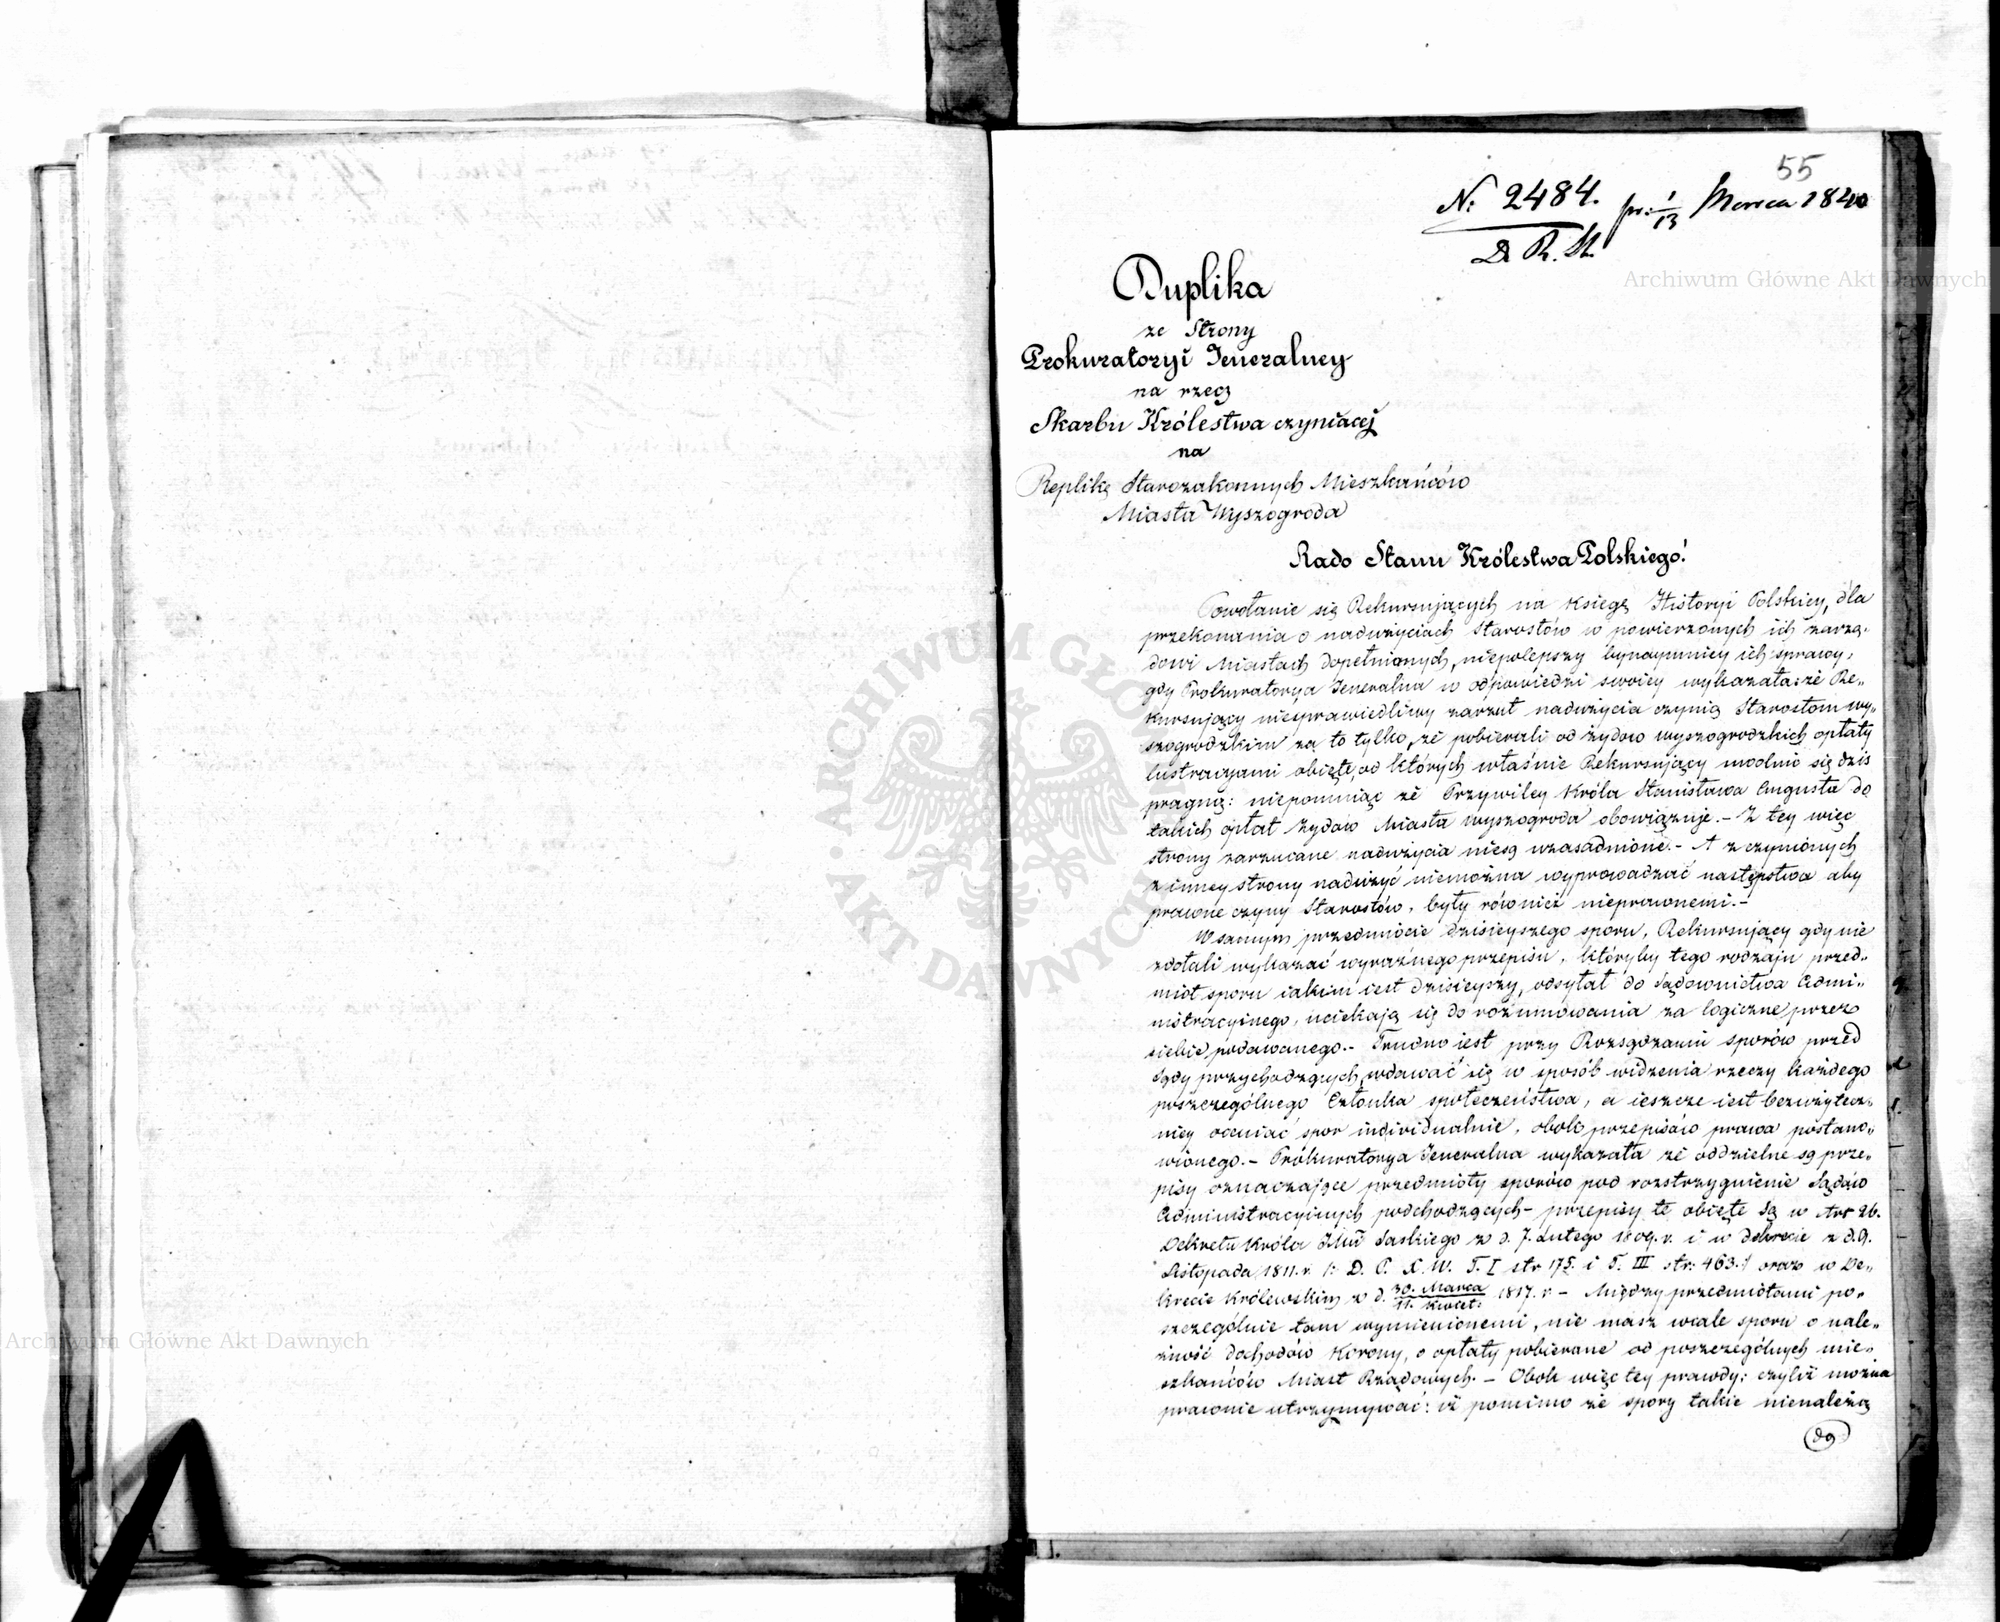 55
№ 2484. pr: 1/13 Marca 1840
D. R. St.
Duplika
ze Strony
Prokuratoryi Jeneralney
na rzecz
Skarbu Królestwa czyniącej
na
Replikę Starozakonnych Mieszkańców
Miasta Wyszogroda
Rado Stanu Królestwa Polskiego!
Powołanie się Rekursujących na Księgę Historyi Polskiey, dla
przekonania o nadużyciach Starostów w powierzonych ich zarzą„
dowi Miastach dopełnionych, niepolepszy bynaymniey ich sprawy,
gdy Prokuratorya Jeneralna w odpowiedzi swoiey wykazała: że Re„
kursujący niesprawiedliwy zarzut nadużycia czynią Starostom wy„
szogrodzkim za to tylko, że pobierali od żydów wyszogrodzkich opłaty
lustracyami obięte, od których właśnie Rekursujący uwolnić się dziś
pragną: niepomniąc że Przywiley Króla Stanisława Augusta do
takich opłat Żydów Miasta Wyszogroda obowiązuje. – Z tey więc
strony zarzucane nadużycia niesą uzasadnione. – A z czynionych
z inney strony nadużyć niemożna wyprowadzać następstwa aby
prawne czyny Starostów, były również nieprawnemi. –
W samym przedmiocie dzisieyszego sporu, Rekursujący gdy nie
zdołali wykazać wyraźnego przepisu, któryby tego rodzaju przed„
miot sporu iakim iest dzisieyszy, odsyłał do Sądownictwa Admi„
nistracyinego, uciekają się do rozumowania za logiczne przez
siebie podawanego. – Trudno iest przy Rozsądzaniu sporów przed
Sądy przychodzących, wdawać się w sposób widzenia rzeczy każdego
poszczególnego Członka społeczeństwa, a ieszcze iest bezużytecz„
niey oceniać spor individualnie, obok przepisów prawa postano„
wionego. – Prokuratorya Jeneralna wykazała że oddzielne są prze„
pisy oznaczające przedmioty sporów pod rozstrzygnienie Sądów
Administracyinych podchodzących – przepisy te obięte są w Art 26.
Dekretu Króla Jmći Saskiego z d. 7. Lutego 1809. r. i w dekrecie z d. 9.
Listopada 1811. r. /: D. P. X. W. T. I str 175. i T. III str: 463. :/ oraz w De„
krecie Królewskim z d. 30. Marca / 11. Kwiet: 1817. r. – Między przedmiotami po„
szczególnie tam wymienionemi, nie masz wcale sporu o nale„
żność dochodów Korony, o opłaty pobierane od poszczególnych mie„
szkańców Miast Rządowych. – Obok więc tey prawdy: czyliż można
prawnie utrzymywać: iż pomimo że spory takie nienależą
do
Archiwum Główne Akt Dawnych
Archiwum Główne Akt Dawnych
ARCHIWUM GŁÓWNE AKT DAWNYCH